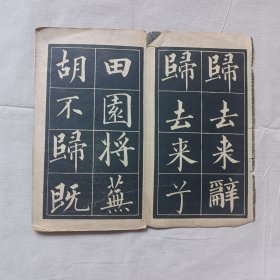 歸去来辭
歸去来丁
田園将蕪
胡不歸既